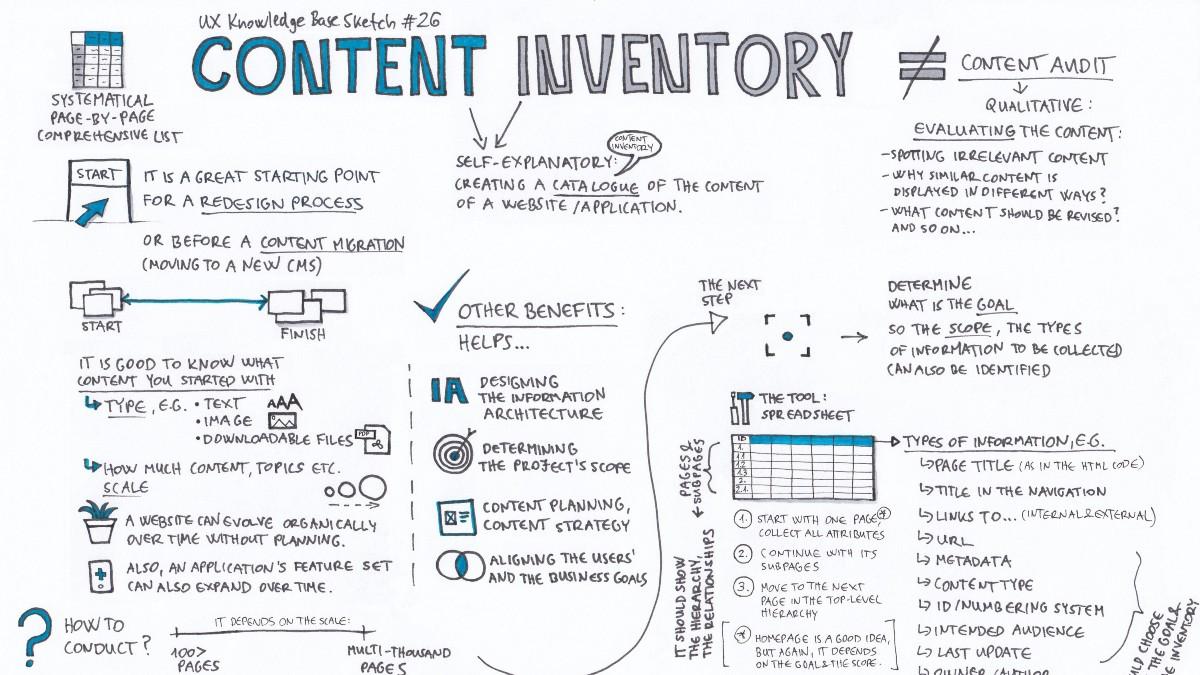 UX Knowledge Base Sketch #26
CONTENT INVENTORY
SYSTEMATICAL
PAGE-BY-PAGE
COMPREHENSIVE LIST
START
IT IS A GREAT STARTING POINT
FOR A REDESIGN PROCESS
OR BEFORE A CONTENT MIGRATION
(MOVING TO A NEW CMS)
START
FINISH
CONTENT
INVENTORY
SELF-EXPLANATORY:
CREATING A CATALOGUE OF THE CONTENT
OF A WEBSITE/APPLICATION.
≠ CONTENT AUDIT
QUALITATIVE:
EVALUATING THE CONTENT:
- SPOTTING IRRELEVANT CONTENT
- WHY SIMILAR CONTENT IS
DISPLAYED IN DIFFERENT WAYS?
- WHAT CONTENT SHOULD BE REVISED?
AND SO ON...
IT IS GOOD TO KNOW WHAT
CONTENT YOU STARTED WITH
TYPE, E.G. • TEXT AAA
• IMAGE
• DOWNLOADABLE FILES PDF
HOW MUCH CONTENT, TOPICS ETC.
SCALE
A WEBSITE CAN EVOLVE ORGANICALLY
OVER TIME WITHOUT PLANNING.
ALSO, AN APPLICATION'S FEATURE SET
CAN ALSO EXPAND OVER TIME.
OTHER BENEFITS:
HELPS...
IA DESIGNING
THE INFORMATION
ARCHITECTURE
DETERMINING
THE PROJECT'S SCOPE
CONTENT PLANNING,
CONTENT STRATEGY
ALIGNING THE USERS'
AND THE BUSINESS GOALS
? HOW TO
CONDUCT?
IT DEPENDS ON THE SCALE:
100>
PAGES
MULTI-THOUSAND
PAGES
THE NEXT
STEP
DETERMINE
WHAT IS THE GOAL
SO THE SCOPE, THE TYPES
OF INFORMATION TO BE COLLECTED
CAN ALSO BE IDENTIFIED
THE TOOL:
SPREADSHEET
PAGES &
SUBPAGES
ID
1.
1.1
1.2
1.3
2.
2.1.
IT SHOULD SHOW
THE HIERARCHY,
THE RELATIONSHIPS
1. START WITH ONE PAGE, *
COLLECT ALL ATTRIBUTES
2. CONTINUE WITH ITS
SUBPAGES
3. MOVE TO THE NEXT
PAGE IN THE TOP-LEVEL
HIERARCHY
* HOMEPAGE IS A GOOD IDEA,
BUT AGAIN, IT DEPENDS
ON THE GOAL & THE SCOPE.
TYPES OF INFORMATION, E.G.
PAGE TITLE (AS IN THE HTML CODE)
TITLE IN THE NAVIGATION
LINKS TO... (INTERNAL & EXTERNAL)
URL
METADATA
CONTENT TYPE
ID/NUMBERING SYSTEM
INTENDED AUDIENCE
LAST UPDATE
OWNER/AUTHOR
CHOOSE
THE GOAL &
INVENTORY